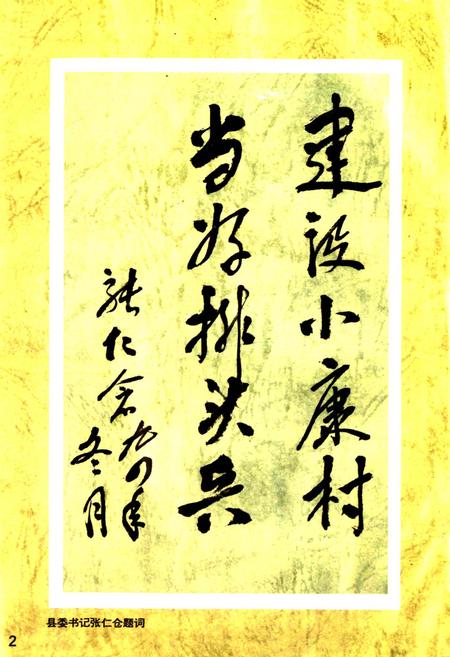 建设小康村
当好排头兵
张仁仓九四年
冬月
县委书记张仁仓题词
2